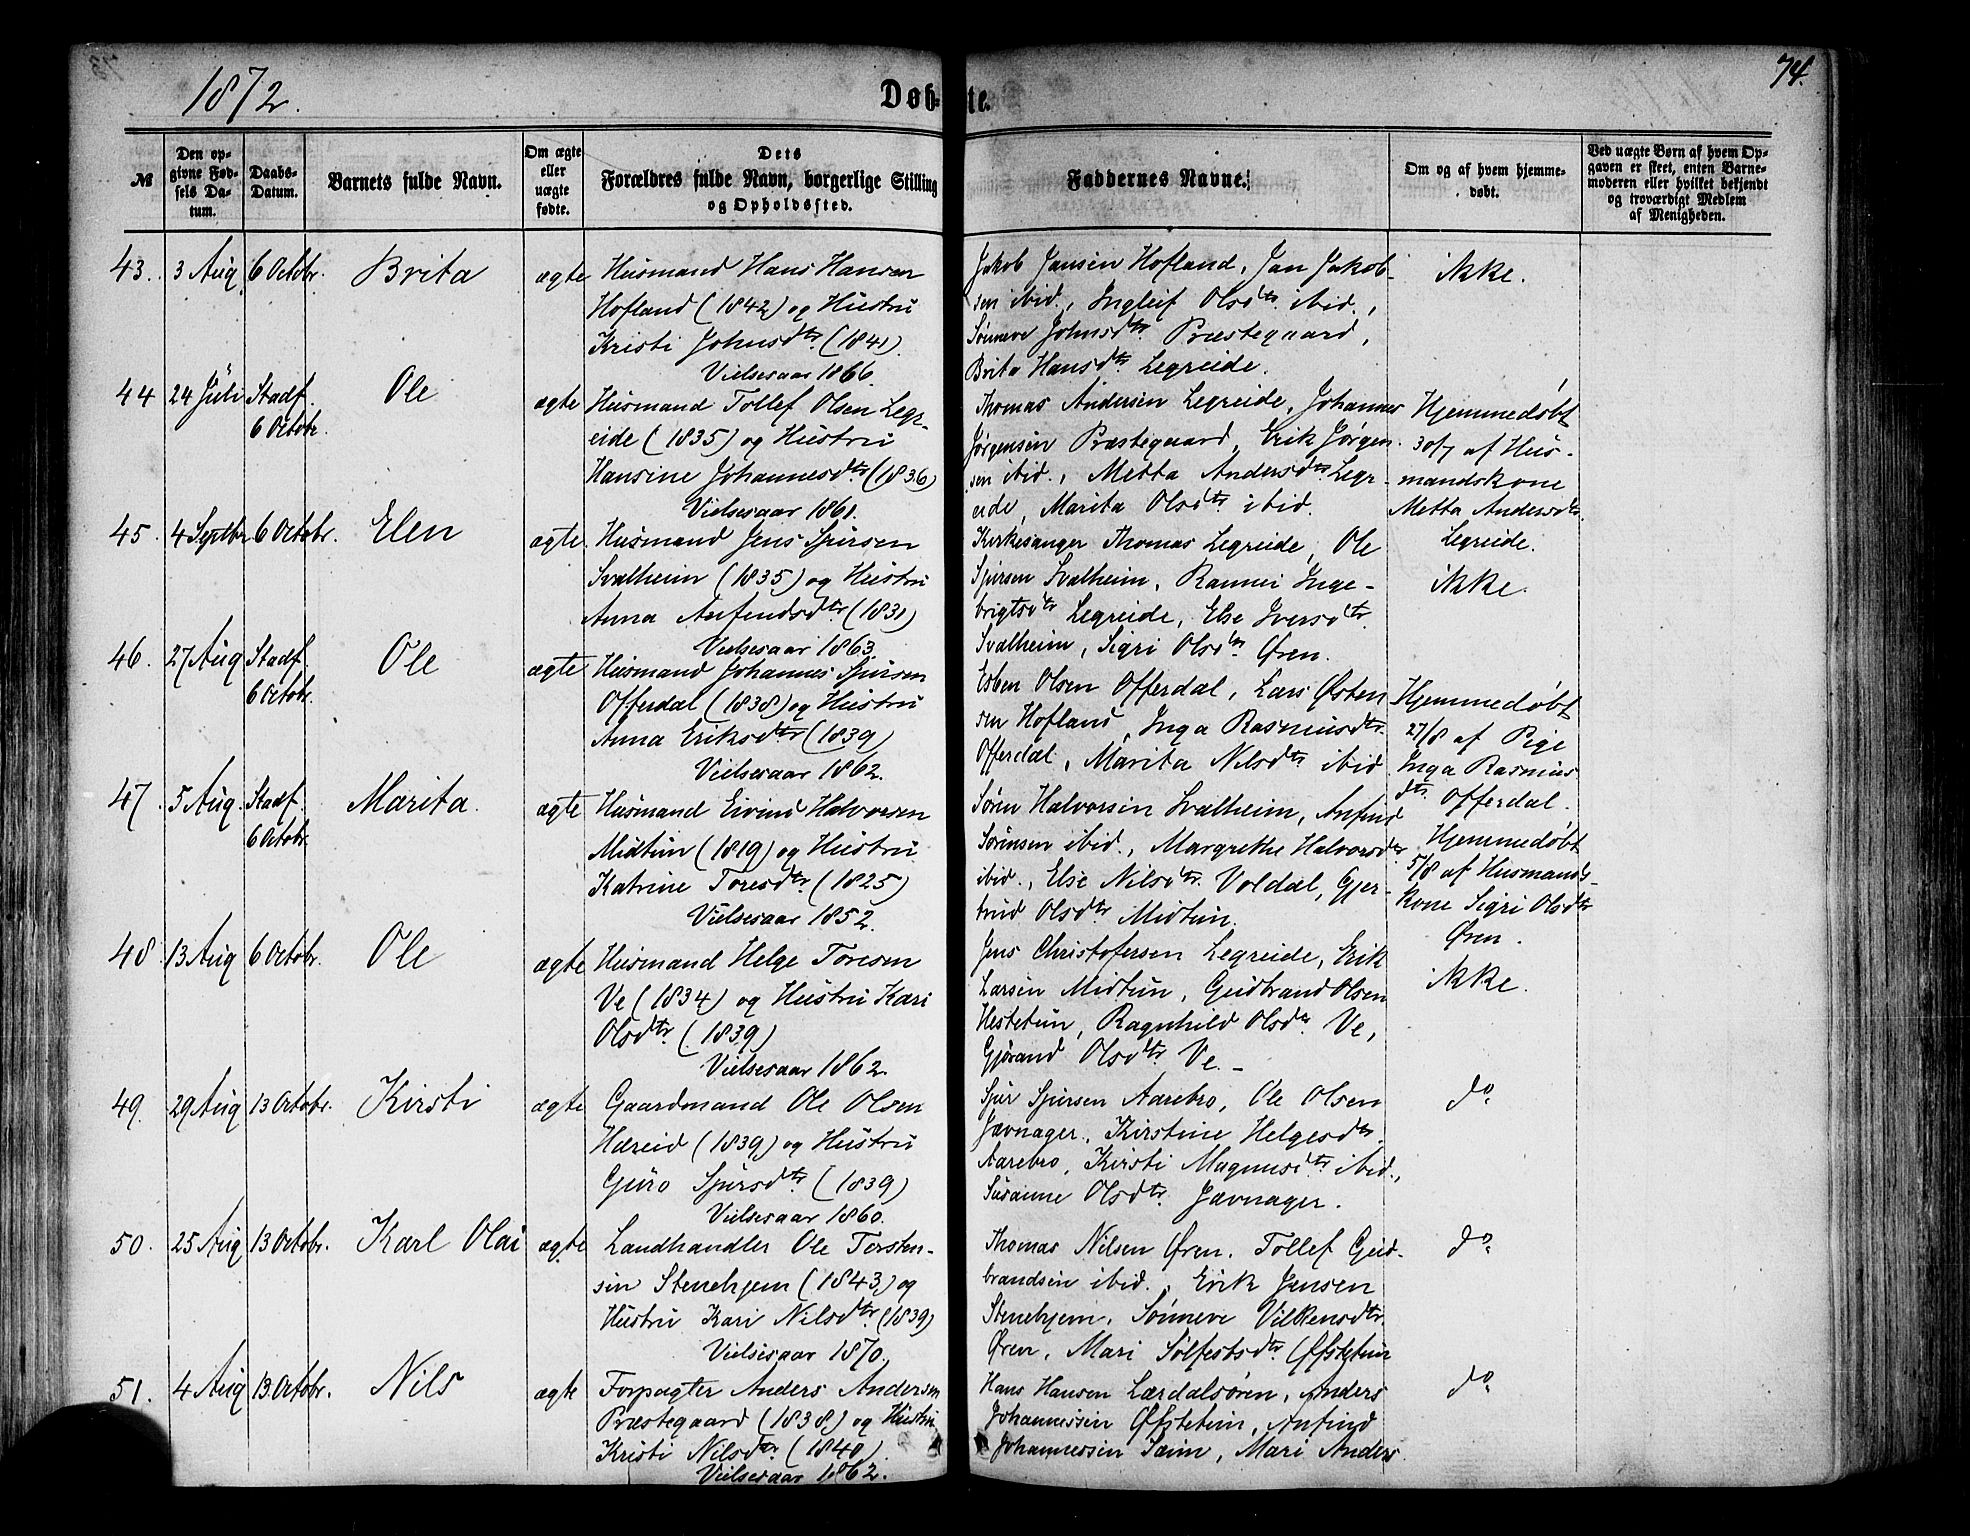 1872.
Døbte.
74.
№
Den opgivne Fødsels Datum.
Daabs-Datum.
Barnets fulde Navn.
Om ægte eller uægte fødte.
Dets Forældres fulde Navn, borgerlige Stilling og Opholdssted.
Faddernes Navne.
Om og af hvem hjemmedøbt.
Ved uægte Børn af hvem Opgaven er skeet, enten Barnemoderen eller hvilket bekjendt og troværdigt Medlem af Menigheden.
43. 3 Aug 6 Octobr. Brita ægte
Husmand Hans Hansen
Hofland (1842) og Hustru
Kristi Johnsdtr. (1841).
Vielsesaar 1866.
Jakob Jansen Hofland, Jan Jakob-
sen ibid., Ingleif Olsdtr. ibid.,
Sønneve Johnsdtr. Præstegaard,
Brita Hansdtr. Legreide.
ikke.
44 24 Juli Stadf. 6 Octobr. Ole ægte
Husmand Tollef Olsen Legr-
eide (1835) og Hustru
Hansine Johannesdtr. (1836)
Vielsesaar 1861.
Thomas Andersen Legreide, Johannes
Jørgensen Præstegaard, Erik Jørgen-
sen ibid., Metta Andersdtr. Legr-
eide, Marita Olsdtr. ibid.
Hjemmedøbt
30/7 af Hus-
mandskone
Metta Andersdtr.
Legreide.
45. 4 Septbr 6 Octobr. Elen ægte.
Husmand Jens Sjursen
Svalheim (1835) og Hustru
Anna Anfindsdtr. (1831)
Vielsesaar 1863.
Kirkesanger Thomas Legreide, Ole
Sjursen Svalheim, Rannei Inge-
brigtsdtr. Legreide, Else Iversdtr.
Svalheim, Sigri Olsdtr. Øren.
ikke.
46. 27 Aug Stadf. 6 Octobr. Ole ægte
Husmand Johannes Sjursen
Offerdal (1838) og Hustru
Anna Eriksdtr. (1839)
Vielsesaar 1862.
Esben Olsen Offerdal, Lars Østen
sen Hofland, Inga Rasmusdtr.
Offerdal, Marita Nilsdtr. ibid
Hjemmedøbt
27/8 af Pige
Inga Rasmus
dtr. Offerdal.
47. 5 Aug. Stadf. 6 Octobr. Marita. ægte
Husmand Eivind Halvorsen
Midtun (1819) og Hustru
Katrine Toresdtr. (1825)
Vielsesaar 1852.
Søren Halvorsen Svalheim, Anfind
Sørensen ibid., Margrethe Halvorsdtr.
ibid., Else Nilsdtr. Voldal, Gjer-
trud Olsdtr. Midtun.
Hjemmedøbt
5/8 af Husmands-
kone Sigri Olsdtr
Øren.
48. 13 Aug 6 Octobr. Ole ægte
Husmand Helge Toresen
Ve (1834) og Hustru Kari
Olsdtr. (1839)
Vielsesaar 1862.
Jens Christofersen Legreide, Erik
Larsen Midtun, Gudbrand Olsen
Hestetun, Ragnhild Olsdtr. Ve,
Gjørand Olsdtr. Ve.
ikke.
49. 29 Aug 13 Octobr. Kirsti ægte
Gaardmand Ole Olsen
Hæreid (1839) og Hustru
Guro Sjursdtr. (1839)
Vielsesaar 1860.
Sjur Sjursen Aarebro, Ole Olsen
Jævnager, Kirstine Helgesdtr.
Aarebro, Kirsti Magnusdtr. ibid.,
Susanne Olsdtr. Jævnager.
do.
50. 25 Aug 13 Octobr. Karl Olai ægte
Landhandler Ole Torsten-
sen Stenehjem (1843) og
Hustru Kari Nilsdtr. (1839)
Vielsesaar 1870.
Thomas Nilsen Øren. Tollef Gud-
brandsen ibid., Erik Jensen
Stenehjem, Sønneve Vilkensdtr.
Øren, Mari Sølfestsdtr. Øfstetun
do.
51. 4 Aug 13 Octobr. Nils ægte
Forpagter Anders Andersen
Præstegaard (1838) og Hustru
Kristi Nilsdtr. (1840).
Vielsesaar 1862.
Hans Hansen Lærdalsøren, Anders
Johannessen Øfstetun, Anfind
Johannessen Tæim, Mari Anders
do.